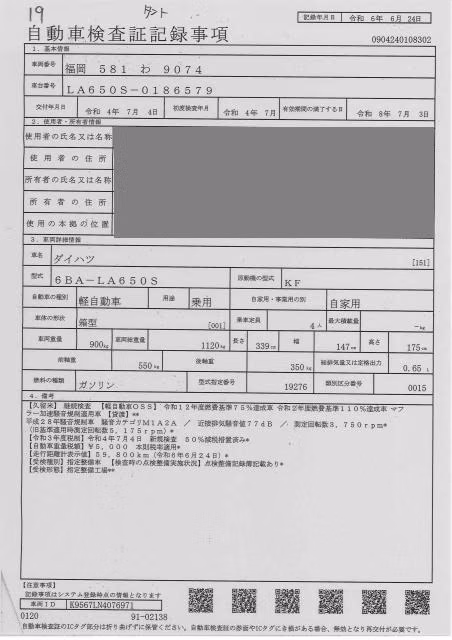 19
タント
記録年月日 令和 6年 6月 24日
自動車検査証記録事項
0904240108302
1. 基本情報
車両番号 福岡 581 わ 9074
車台番号 LA650S-0186579
交付年月日 令和 4年 7月 4日 初度検査年月 令和 4年 7月 有効期間の満了する日 令和 8年 7月 3日
2. 使用者・所有者情報
使用者の氏名又は名称
使用者の住所
所有者の氏名又は名称
所有者の住所
使用の本拠の位置
3. 車両詳細情報
車名 ダイハツ [151]
型式 6BA-LA650S 原動機の型式 KF
自動車の種別 軽自動車 用途 乗用 自家用・事業用の別 自家用
車体の形状 箱型 [001] 乗車定員 4人 最大積載量 -kg
車両重量 900kg 車両総重量 1120kg 長さ 339cm 幅 147cm 高さ 175cm
前軸重 550kg 後軸重 350kg 総排気量又は定格出力 0.65 L
燃料の種類 ガソリン 型式指定番号 19276 類別区分番号 0015
4. 備考
【久留米】 継続検査 【軽自動車OSS】 令和12年度燃費基準75%達成車 令和2年度燃費基準110%達成車 マフ
ラー加速騒音規制適用車 【資源】**
平成28年騒音規制車 騒音カテゴリM1A2A / 近接排気騒音値77dB / 測定回転数3,750rpm*
(旧基準適用時測定回転数5,175rpm)*
【令和3年度税制】令和4年7月4日 新規検査 50%減税措置済み*
【自動車重量税額】¥5,000 本則税率適用*
【走行距離計表示値】59,800km(令和6年6月24日)*
【受検種別】指定整備車 【検査時の点検整備実施状況】点検整備記録簿記載あり*
【受検形態】指定整備工場**
【注意事項】
記録事項はシステム登録時点の情報となります
車両ID K9567LN4076971
0120 91-02138
自動車検査証のICタグ部分は折り曲げずに保管ください。自動車検査証の券面やICタグにき損がある場合、無効となり再交付が必要です。